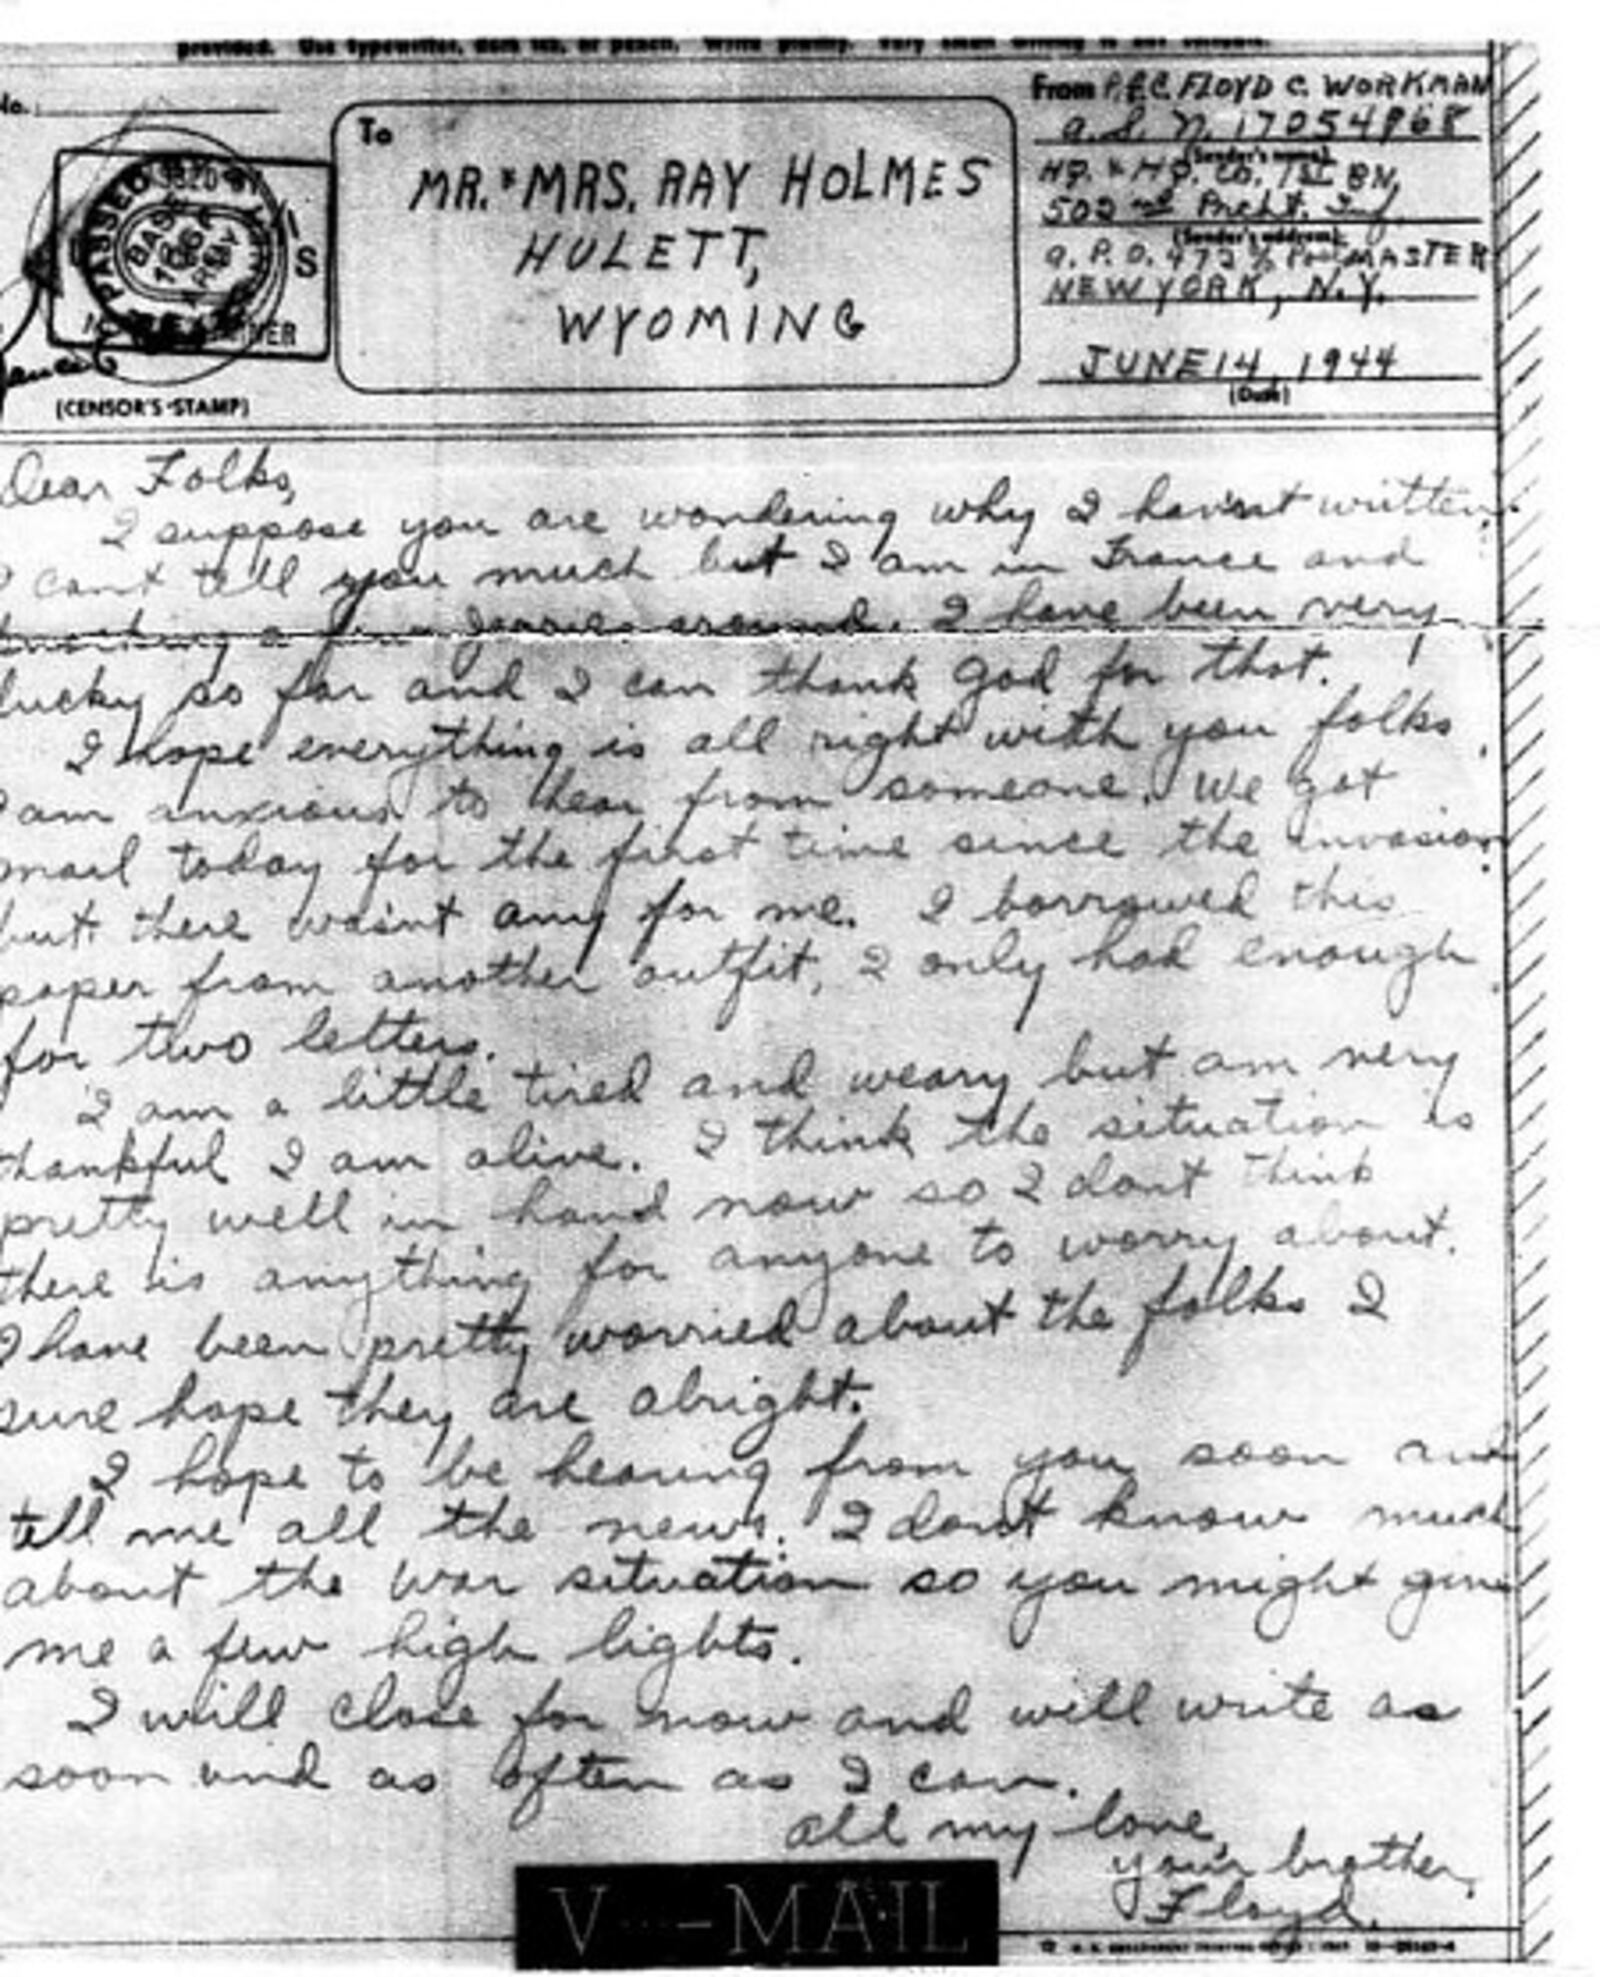 provided. Use typewriter, dark ink, or pencil. Write plainly. Very small writing is not suitable.
No.
To
MR. & MRS. RAY HOLMES
HULETT,
WYOMING
From P.F.C. FLOYD C. WORKMAN
A. S. N. 17054968
(Sender's name)
HQ. & HQ. CO. 1st BN,
502nd Prcht. Inf.
(Sender's address)
A. P. O. 472 % PostMASTER
NEW YORK, N.Y.
JUNE 14, 1944
(Date)
PASSED BY
BASE
ARMY
EXAMINER
S
(CENSOR'S STAMP)
Dear Folks,
I suppose you are wondering why I hav'nt written.
I cant tell you much but I am in France and
knocking a few Jerries around. I have been very
lucky so far and I can thank God for that.
I hope everything is all right with you folks,
I am anxious to hear from someone. We got
mail today for the first time since the invasion
but there wasn't any for me. I borrowed this
paper from another outfit, I only had enough
for two letters.
I am a little tired and weary but am very
thankful I am alive. I think the situation is
pretty well in hand now so I dont think
there is anything for anyone to worry about.
I have been pretty worried about the folks I
sure hope they are alright.
I hope to be hearing from you soon and
tell me all the news. I don't know much
about the war situation so you might give
me a few high lights.
I will close for now and will write as
soon and as often as I can.
All my love,
your brother,
Floyd.
V-MAIL
U. S. GOVERNMENT PRINTING OFFICE